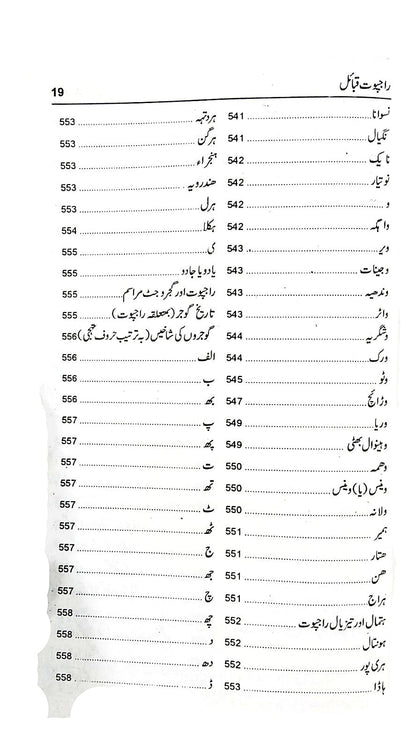 راجپوت قبائل 19
نسوانا 541
نگیال 541
نایک 542
نوتیار 542
و 542
واہگہ 542
ویر 543
وجینات 543
وندھیہ 543
واتر 543
وشگریہ 544
ورک 544
وٹو 545
وڑائچ 547
وریا 549
وہینوال بھٹی 549
وھمہ 550
وینس (یا) وینس 550
ولانہ 550
ہمیر 551
ھتار 551
ھن 551
ہراج 551
ہتمال اور تیزیال راجپوت 552
ہونتال 552
ہری پور 552
ہاڈا 553
ہردتہہ 553
ہرگن 553
ہنجراء 553
ھندرویہ 553
ہرل 553
ہکلا 554
ی 555
یادو یا جادو 555
راجپوت اور گجر و جٹ مراسم 555
تاریخ گوجر (بمتعلقہ راجپوت) 555
گوجروں کی شاخیں (بہ ترتیب حروف تہجی) 556
الف 556
ب 556
بھ 556
پ 557
پھ 557
ت 557
تھ 557
ٹ 557
ٹھ 557
ج 557
جھ 557
چ 557
چھ 558
د 558
دھ 558
ڈ 558